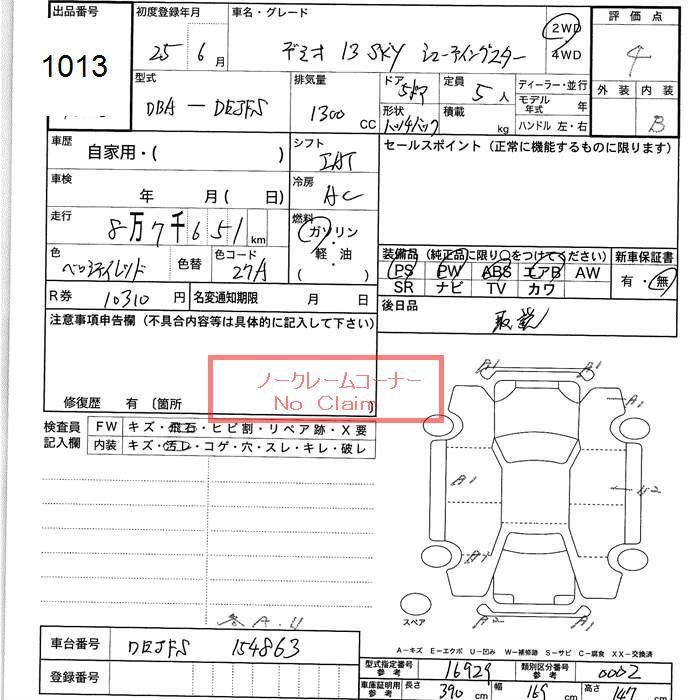 出品番号 初度登録年月 車名・グレード 2WD 評価点
1013 25年 6月 デミオ 13 SKY シューティングスター 4WD 4
型式 排気量 ドア 5ドア 定員 5人 ディーラー・並行 外装 内装
DBA - DEJFS 1300 CC 形状 ハッチバック 積載 kg モデル年式 年 B
ハンドル 左・右
車歴 自家用・( ) シフト IAT セールスポイント (正常に機能するものに限ります)
車検 年 月( 日) 冷房 AC
走行 8万7千651km 燃料 ガソリン・軽・油 ( )
装備品 (純正品に限り○をつけてください) 新車保証書
色 色替 色コード 27A PS PW ABS エアB AW 有・無
SR ナビ TV カワ
R券 10310円 名変通知期限 月 日 後日品 取説
注意事項申告欄 (不具合内容等は具体的に記入して下さい)
ノークレームコーナー
No Claim
修復歴 有 〔箇所
検査員記入欄 FW キズ・飛石・ヒビ割・リペア跡・X要
内装 キズ・汚レ・コゲ・穴・スレ・キレ・破レ
A1 A1
A1
A1 U2
A1
A2 A2
スペア
A-キズ E-エクボ U-凹み W-補修跡 S-サビ C-腐食 XX-交換済
車台番号 DEJFS 154863
型式指定番号 参考 16929 類別区分番号 参考 0002
登録番号 車庫証明用 参考 長さ 390 cm 幅 169 cm 高さ 147 cm